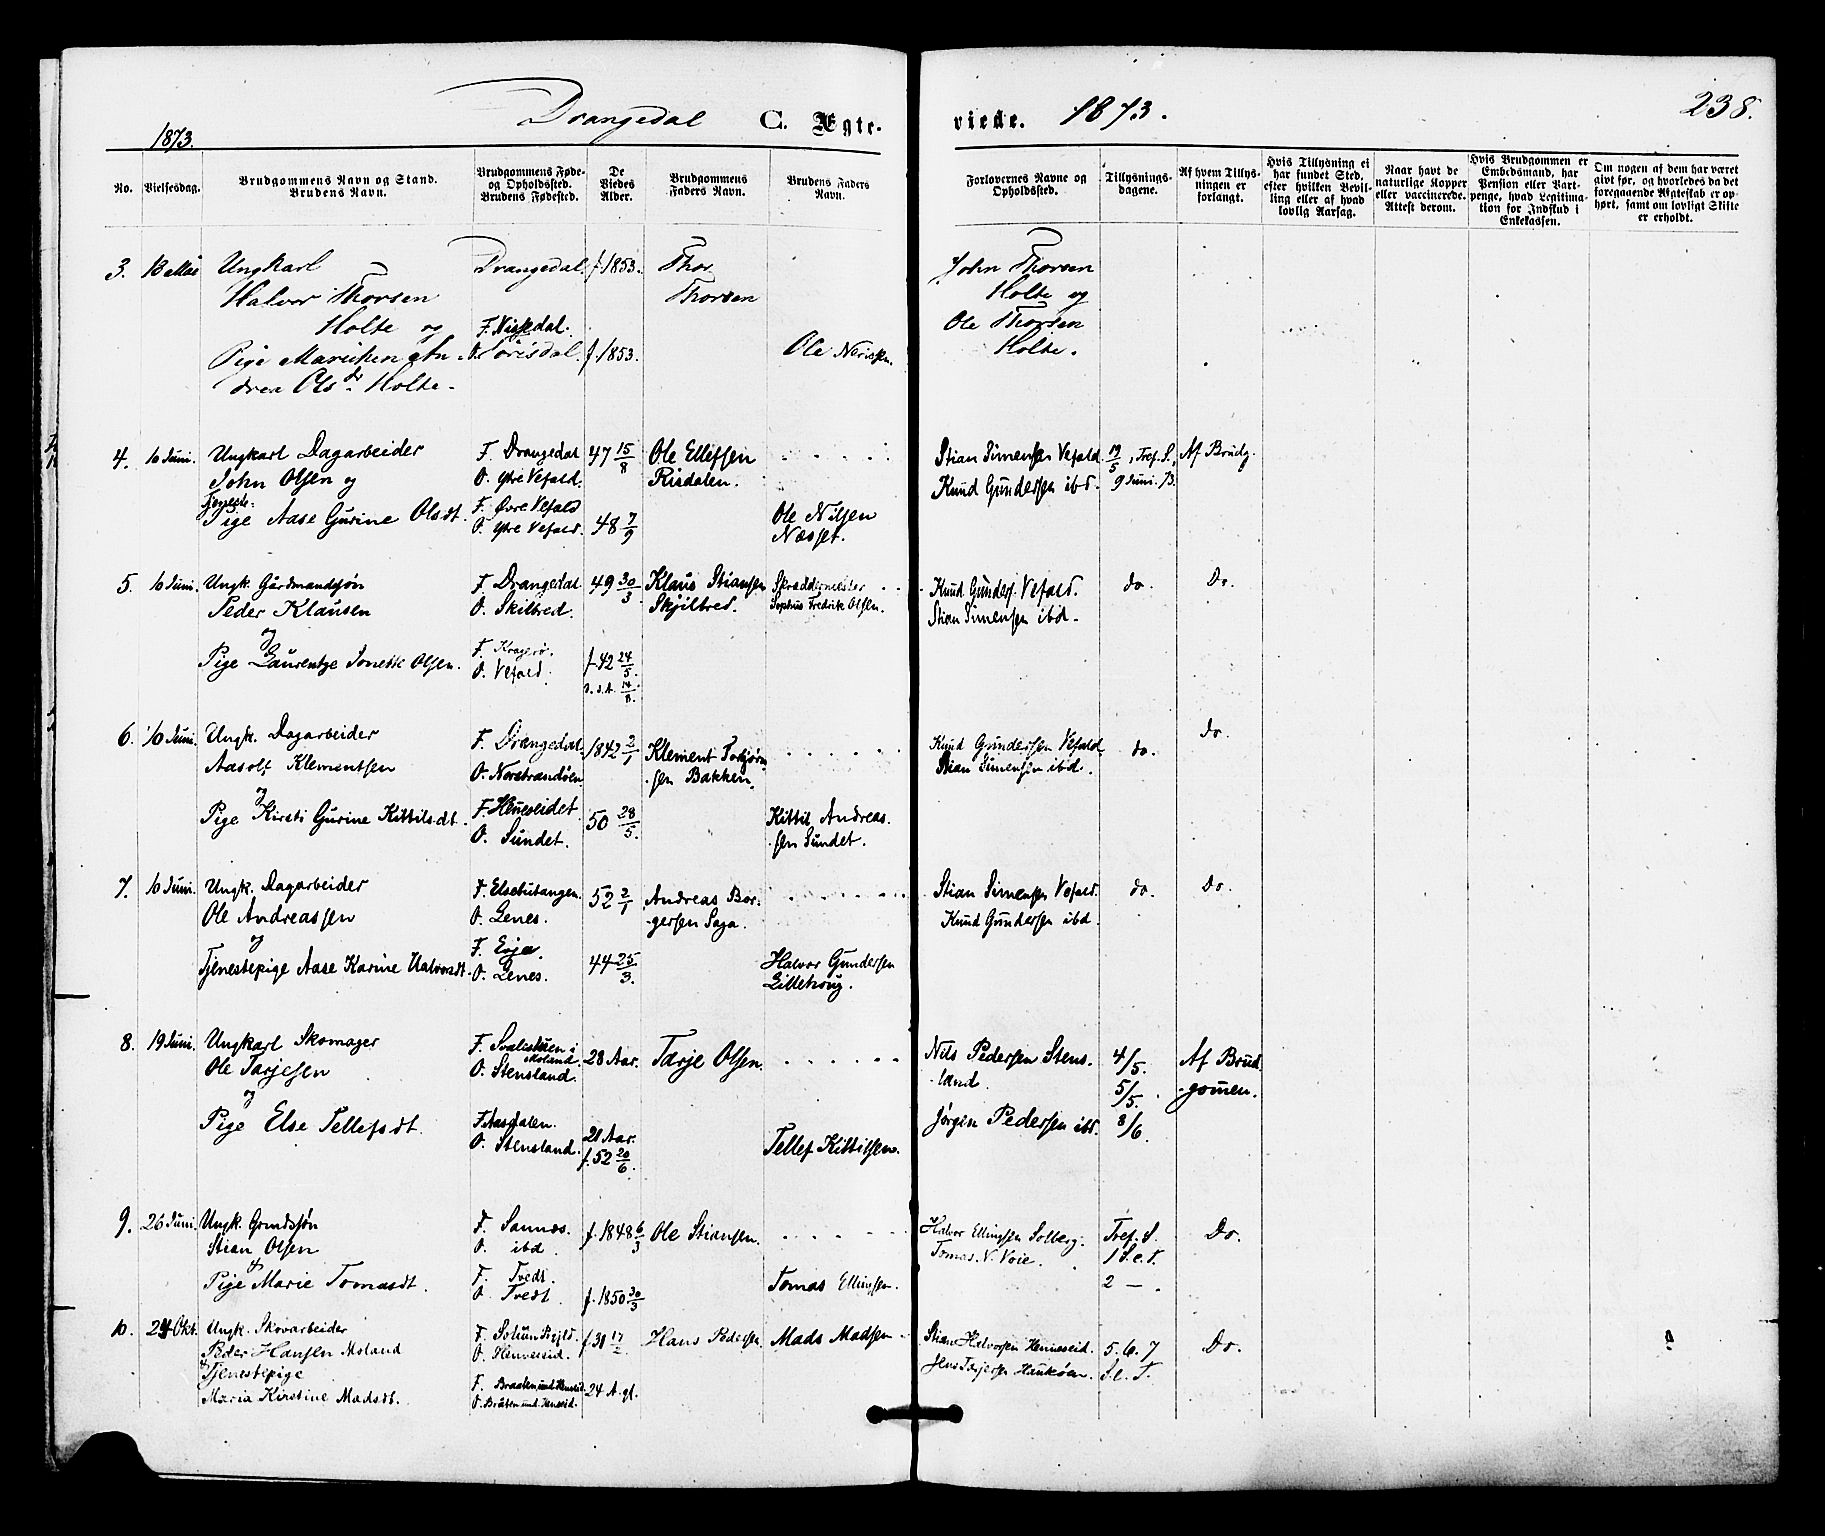 Drangedal C. Ægte- viede. 1873. 238.
1873.
No.
Vielsesdag.
Brudgommens Navn og Stand.
Brudens Navn.
Brudgommens Føde-
og Opholdssted.
Brudens Fødested.
De
Viedes
Alder.
Brudgommens
Faders Navn.
Brudens Faders
Navn.
Forlovernes Navne og
Opholdssted.
Tillysnings-
dagene.
Af hvem Tillys-
ningen er
forlangt.
Hvis Tillysning ei
har fundet Sted,
efter hvilken Bevil-
ling eller af hvad
lovlig Aarsag.
Naar havt de
naturlige Kopper
eller vaccinerede.
Attest derom.
Hvis Brudgommen er
Embedsmand, har
Pension eller Vart-
penge, hvad Legitima-
tion for Indskud i
Enkekassen.
Om nogen af dem har været
gift før, og hvorledes da det
foregaaende Ægteskab er op-
hørt, samt om lovligt Skifte
er erholdt.
3. 13 Mai Ungkarl Drangedal f. 1853. Thor John Thorsen
Halvor Thorsen Thorsen Holte og
Holte og F. Nissedal. Ole Thorsen
Pige Marichen An- O. Tørisdal. f. 1853. Ole Neriksen. Holte.
drea Olsdr Holte.
4. 10 Juni. Ungkarl Dagarbeider F. Drangedal 47 15/8 Ole Ellefsen Stian Simensen Vefald 19/5, Tref. S., Af Brudg.
John Olsen og O. Ytre Vefald. Risdalen. Knud Gundersen ibd. 9 Juni 73.
Tjeneste-
Pige Aase Gurine Olsdt. F. Øvre Vefald O. Ytre Vefald. 48 7/9 Ole Nilsen
Næsset.
5. 10 Juni. Ungk. Gårdmandssøn F. Drangedal 49 30/3 Klaus Stiansen Skræddermester Knud Gunders. Vefald. do. Do.
Peder Klausen O. Skilbred. Skjilbred. Sophus Fredrik Olsen. Stian Simensen ibd.
og
Pige Laurentze Tonette Olsen. F. Kragerø. f. 42 24/5
O. Vefald. 14/8
6. 10 Juni. Ungk. Dagarbeider F. Drangedal. 1842 2/1 Klement Torbjørn- Knud Gundersen Vefald do. Do.
Aasolf Klementsen O. Norstrandøen sen Bakken. Stian Simensen ibd.
og
Pige Kirsti Gurine Kittilsdt. F. Henneseidet 50 28/5. Kittil Andreas-
O. Sundet. sen Sundet.
7. 10 Juni. Ungk. Dagarbeider F. Elsebutangen 52 2/1 Andreas Bor- Stian Simensen Vefald. do Do.
Ole Andreassen O. Lenes. gersen Saga. Knud Gundersen ibd.
og
Tjenestepige Aase Karine Halvorsdt. F. Evja. 44 25/3. Halvor Gundersen
O. Lenes. Lillehoug.
8. 19 Juni. Ungkarl Skomager F. Svalistuen i 28 Aar. Tarje Olsen. Nils Pedersen Stens- 4/5. Af Brud-
Moland
Ole Tarjesen O. Stensland. land. 5/5. gomen.
og
Pige Else Tellefsdt. F. Aasdalen. 21 Aar. Jørgen Pedersen ibd. 8/6.
O. Stensland. f. 52 20/6. Tellef Kittilsen.
9. 26 Juni. Ungk. Grmdssøn F. Sannes. f. 1848 6/3 Ole Stiansen. Halvor Ellingsen Solberg. Tref. S. Do.
Stian Olsen O. ibd Tomas N. Voie. 1 S. e. T.
&
Pige Marie Tomasdt. F. Tvedt. 2 —.
O. Tvedt. f. 1850 30/3 Tomas Ellingsen.
10. 24 Okt. Ungk. Skovarbeider F. Solum f. 38 17/2 Hans Pedersen Mads Madsen Stian Halvorsen Henneseid. 5. 6. 7 Do.
Peder Hansen Moland O. Henneseid. Jens Tarjesen Haukøen. S. e. T.
& Tjenestepige
Maria Kirstine Madsdt. F. Braaten und. Henneseid 24 A. gl.
O. Bråten und. Henneseid.